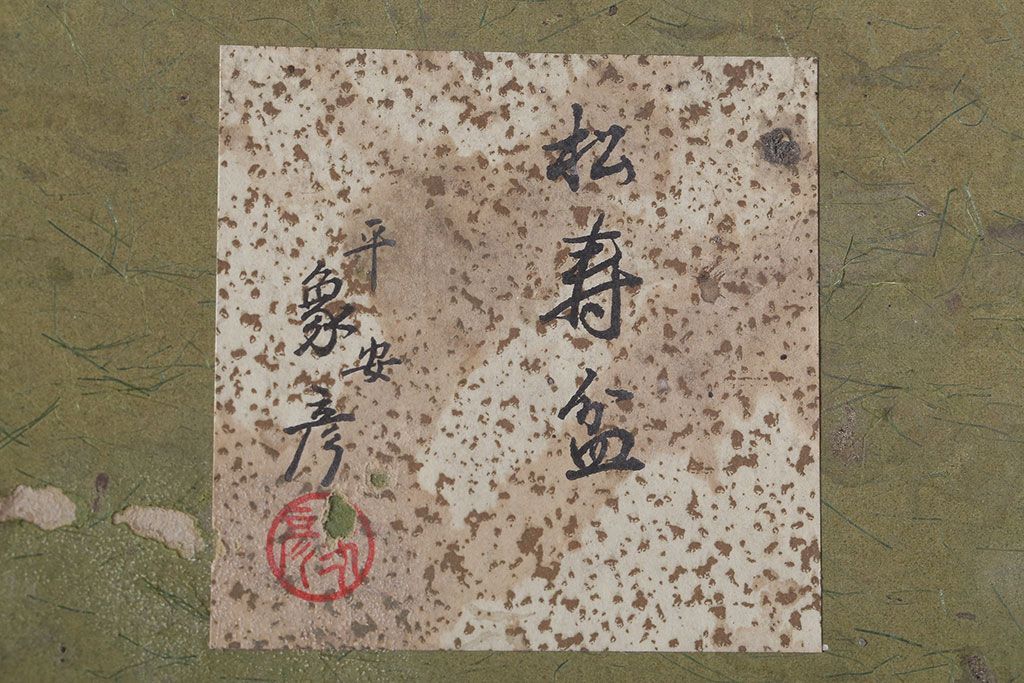 松寿盆
平安
象彦